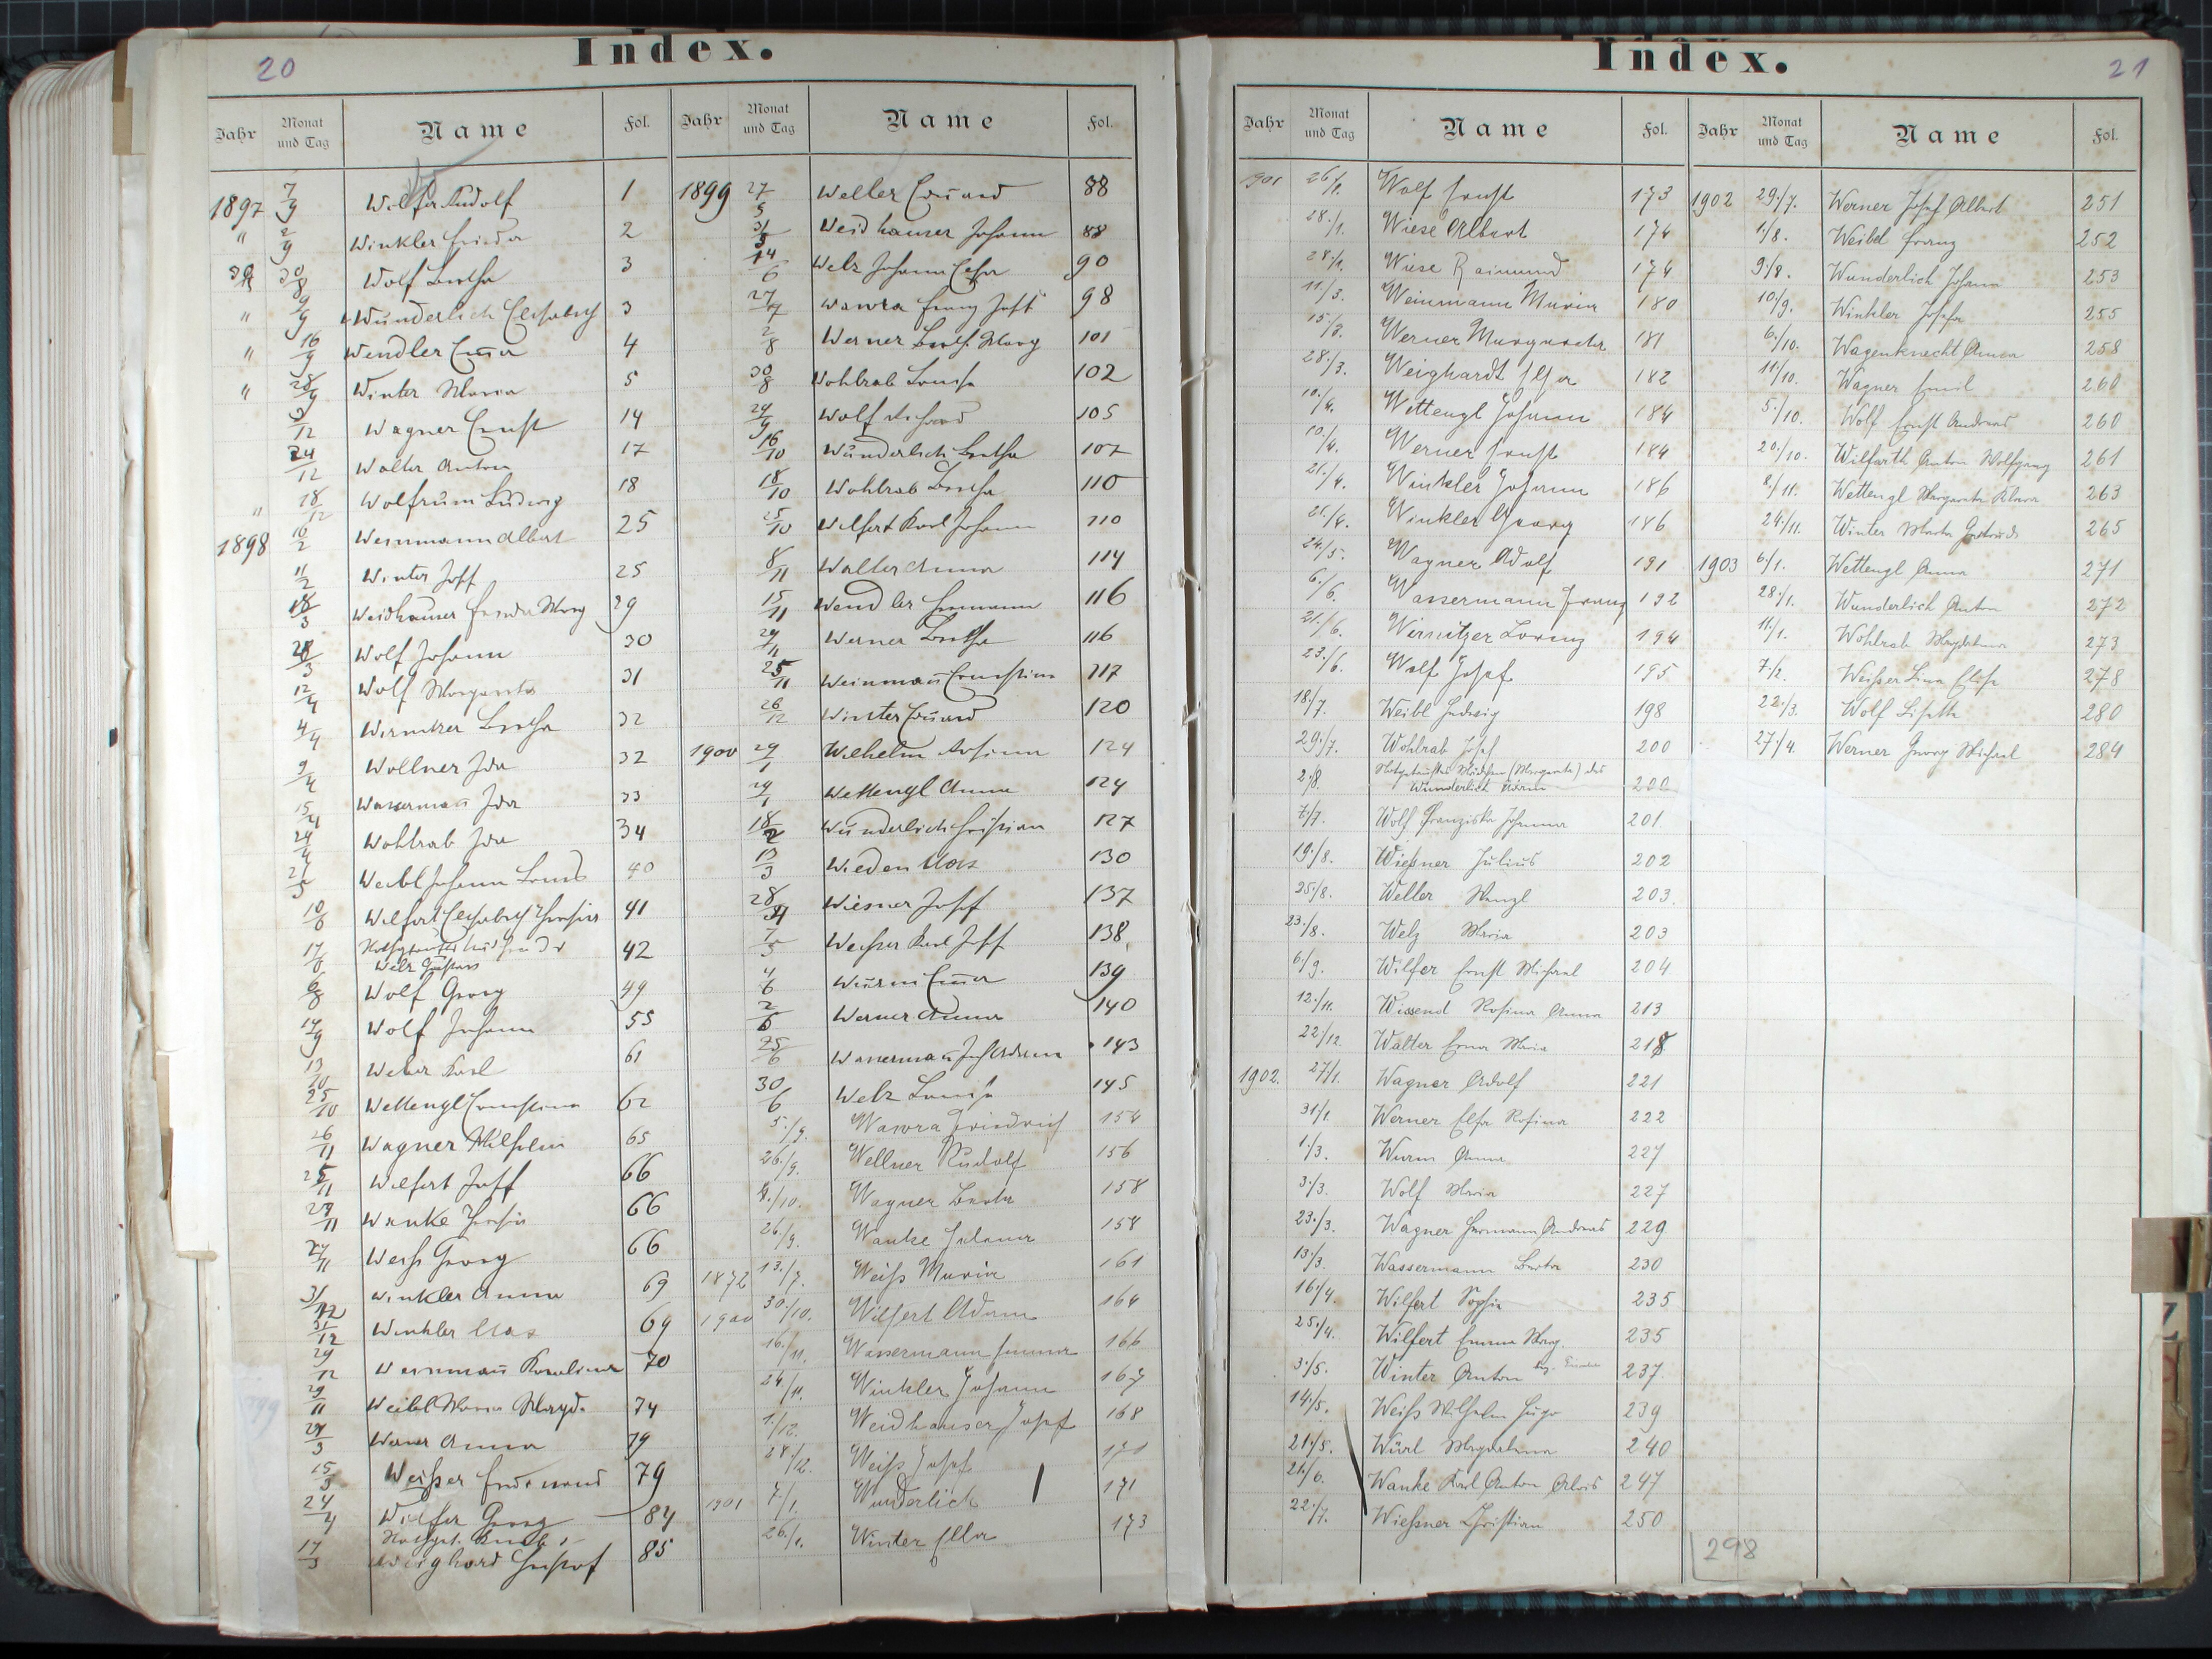 20
Index.
Jahr Monat und Tag Name Fol.
1897 7/9 Wilfer Rudolf 1
" 2/9 Winkler Frieda 2
30/8 Wolf Bertha 3
" 9/9 Wunderlich Elisabeth 3
" 16/9 Wendler Emma 4
" 28/9 Winter Maria 5
3/12 Wagner Ernst 14
24/12 Walter Anton 17
" 18/12 Wolfrum Ludwig 18
1898 10/2 Weinmann Albert 25
11/2 Winter Josef 25
18/3 Weidhauser Frieda Marg 29
28/3 Wolf Johann 30
12/4 Wolf Margareta 31
4/4 Wirnitzer Bertha 32
9/4 Wollner Ida 32
15/4 Wassermañ Ida 33
24/4 Wohlrab Ida 34
21/5 Weibl Johann Louis 40
10/6 Wilfert Elisabeth Theresia 41
17/6 Nothgetauftes Mädchen d
Welz Gustav 42
6/8 Wolf Georg 49
14/9 Wolf Johann 55
13/10 Weber Karl 61
25/10 Wettengl Ernestina 62
26/11 Wagner Wilhelm 65
25/11 Wilfert Josef 66
27/11 Wanke Theresia 66
27/11 Weiß Georg 66
31/12 Winkler Anna 69
31/12 Winkler Max 69
29/12 Weinmañ Karolina 70
29/11 Weibl Maria Magd. 74
27/3 Werner Anna 79
15/3 Weißer Ferdinand 79
24/4 Wilfer Georg 84
17/3 Nothget. Knabe
Weighard Gustav 85
Jahr Monat und Tag Name Fol.
1899 27/5 Weller Eduard 88
31/5 Weidhauser Johann 88
14/6 Welz Johann 90
27/7 Wawra Franz Josef 98
2/8 Werner Marg 101
30/8 Wohlrab Louisa 102
24/9 Wolf Richard 105
16/10 Wunderlich Bertha 107
18/10 Wohlrab Bertha 110
25/10 Wilfert Karl Johann 110
8/11 Walter Anna 114
15/11 Wendler Hermann 116
29/11 Werner Bertha 116
25/11 Weinmañ Ernestine 117
26/12 Winter Eduard 120
1900 29/1 Wilhelm Rosina 124
29/1 Wettengl Anna 124
18/2 Wunderlich Christian 127
13/3 Wieden Max 130
28/4 Wiesner Josef 137
7/5 Weißer Karl Josef 138
4/6 Wurm Emma 139
2/6 Werner Anna 140
25/6 Wassermañ Adam 143
30/6 Welz Louisa 145
5./9. Wawra Friedrich 154
26./9. Wellner Rudolf 156
8./10. Wagner Berta 158
26./9. Wanke Helena 158
1872 13./7. Weiß Maria 161
1900 30./10. Wilfert Adam 164
16./11. Wassermann Emma 166
24./11. Winkler Johann 167
1./12. Weidhauser Josef 168
28./12. Weiß Josef 171
1901 7./1. Wunderlich 171
26./1. Winter Ella 173
21
Index.
Jahr Monat und Tag Name Fol.
1901 26./1. Wolf Ernst 173
28./1. Wiese Albert 174
28./1. Wiese Raimund 174
11./3. Weinmann Maria 180
15./3. Werner Margareta 181
28./3. Weighardt Elsa 182
10./4. Wettengl Johann 184
10./4. Werner Ernst 184
21./4. Winkler Johann 186
21./4. Winkler Georg 186
24./5. Wagner Adolf 191
6./6. Wassermann Franz 192
21./6. Wirnitzer Lorenz 194
23./6. Wolf Josef 195
18./7. Weibl Hedwig 198
29./7. Wohlrab Josef 200
2./8. Notgetauftes Mädchen (Margareta) des
Wunderlich 200
7./7. Wolf Franziska Johanna 201
19./8. Wießner Julius 202
25./8. Weller Wenzl 203.
23./8. Welz Maria 203
6./9. Wilfer Ernst Michael 204
12./11. Wissend Rosina Anna 213
22./12. Walter Erna Maria 218
1902. 27/1. Wagner Adolf 221
31/1. Werner Elsa Rosina 222
1./3. Wurm Anna 227
3./3. Wolf Maria 227
23./3. Wagner Hermann Andreas 229
13./3. Wassermann Berta 230
16./4. Wilfert Sophie 235
25./4. Wilfert Emma Marg. 235
3./5. Winter Anton 237.
14./5. Weiß Wilhelm Hugo 239
21./5. Würl Magdalena 240
21./6. Wanke Karl Anton Alois 247
22./7. Wießner Christian 250
Jahr Monat und Tag Name Fol.
1902 29./7. Werner Josef Albert 251
1/8. Weibel Franz 252
9./8. Wunderlich Johann 253
10./9. Winkler Josefa 255
6./10. Wagenknecht Anna 258
11./10. Wagner Emil 260
5./10. Wolf Ernst Andreas 260
20./10. Wilfarth Anton Wolfgang 261
8/11. Wettengl Margareta Klara 263
24./11. Winter Marta Gertrud 265
1903 6./1. Wettengl Anna 271
28./1. Wunderlich Anton 272
11./1. Wohlrab Magdalena 273
7./2. Weißer Lina Elise 278
22./3. Wolf Lisette 280
27./4. Werner Georg Michael 284
298